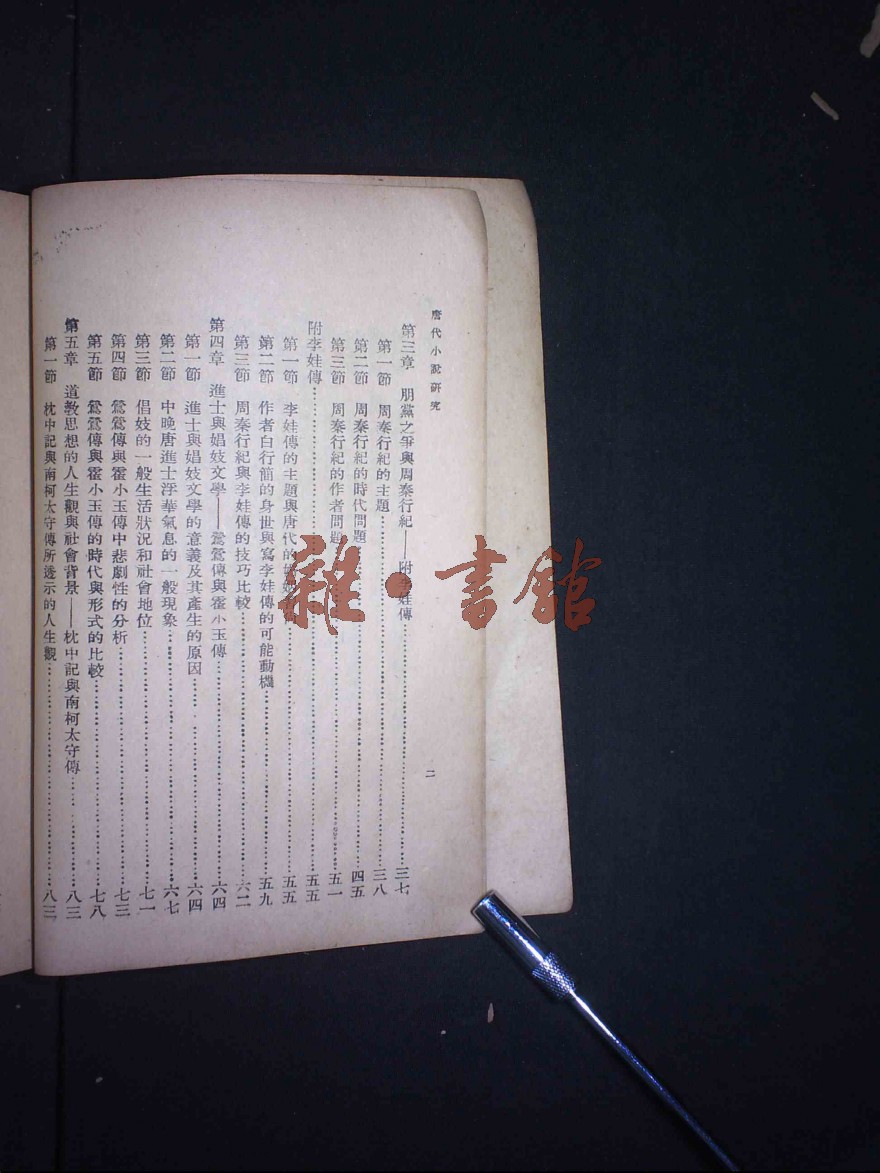 唐代小說研究
二
第三章 朋黨之爭與周秦行紀——附李娃傳………三七
第一節 周秦行紀的主題………三八
第二節 周秦行紀的時代問題………四五
第三節 周秦行紀的作者問題………五一
附李娃傳………五五
第一節 李娃傳的主題與唐代的………五五
第二節 作者白行簡的身世與寫李娃傳的可能動機………五九
第三節 周秦行紀與李娃傳的技巧比較………六二
第四章 進士與娼妓文學——鶯鶯傳與霍小玉傳………六四
第一節 進士與娼妓文學的意義及其產生的原因………六四
第二節 中晚唐進士浮華氣息的一般現象………六七
第三節 倡妓的一般生活狀況和社會地位………七一
第四節 鶯鶯傳與霍小玉傳中悲劇性的分析………七三
第五節 鶯鶯傳與霍小玉傳的時代與形式的比較………七八
第五章 道教思想的人生觀與社會背景——枕中記與南柯太守傳………八三
第一節 枕中記與南柯太守傳所透示的人生觀………八三
雜·書館